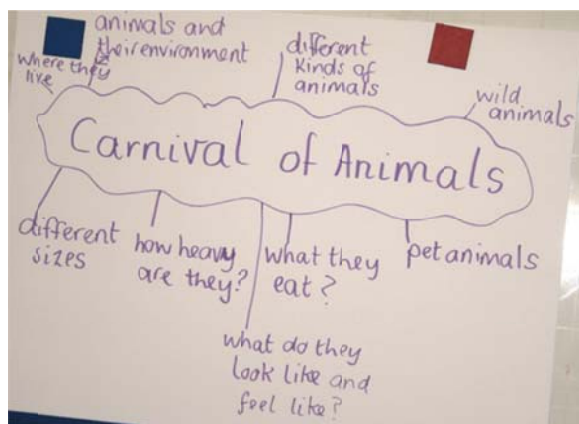 animals and
their environment
where they
live
different
kinds of
animals
wild
animals
Carnival of Animals
different
sizes
how heavy
are they?
what they
eat?
pet animals
what do they
look like and
feel like?